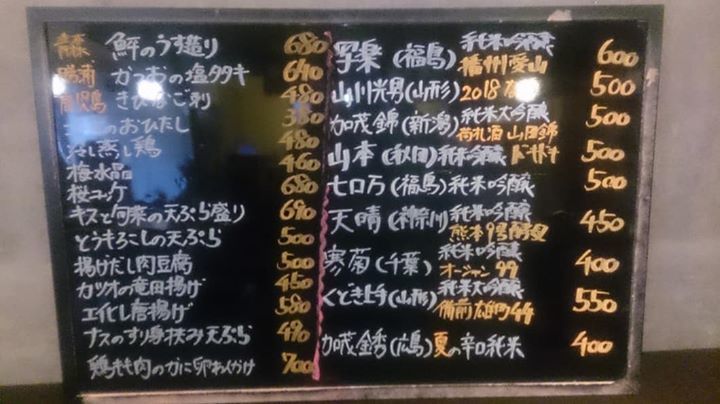 青森 鮃のうす造り 680
勝浦 かつおの塩タタキ 640
鹿児島 きびなご刺 480
のおひたし 380
冷し蒸し鶏 480
梅水晶 460
桜ユッケ 680
キスと旬菜の天ぷら盛り 690
とうもろこしの天ぷら 500
揚げだし肉豆腐 500
カツオの竜田揚げ 450
エイヒレ唐揚げ 580
ナスのすり身挟み天ぷら 490
鶏もも肉のかに卵あんかけ 700
写楽(福島) 純米吟醸 播州愛山 600
山川光男(山形) 2018 500
加茂錦(新潟) 純米大吟醸 荷札酒 山田錦 500
山本(秋田) 純米吟醸 ドキドキ 500
七ロ万(福島) 純米吟醸 500
天晴(神奈川) 純米吟醸 熊本9号酵母 450
寒菊(千葉) 純米吟醸 オーシャン99 400
くどき上手(山形) 純米大吟醸 備前雄町44 550
加茂金秀(広島) 夏の辛口純米 400